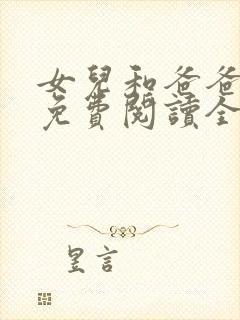 女兒和爸爸
免費閱讀全
昱言